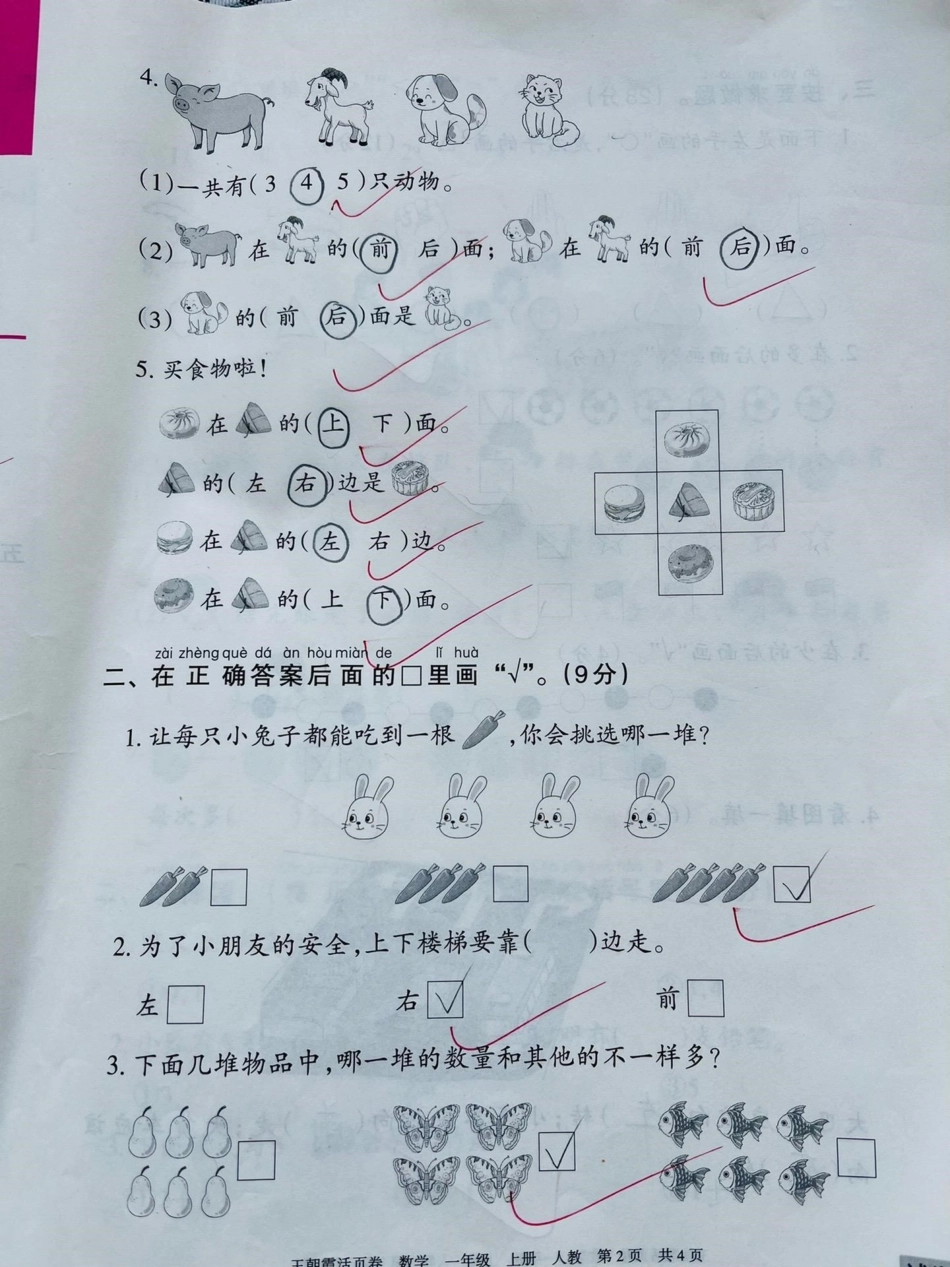 4.
(1)一共有(3 4 5)只动物。
(2) 在 的(前 后)面; 在 的(前 后)面。
(3) 的(前 后)面是 。
5. 买食物啦!
在 的(上 下)面。
的(左 右)边是 。
在 的(左 右)边。
在 的(上 下)面。
zài zhèng què dá àn hòu miàn de lǐ huà
二、在正确答案后面的□里画“√”。(9分)
1. 让每只小兔子都能吃到一根 ,你会挑选哪一堆?
2. 为了小朋友的安全,上下楼梯要靠( )边走。
左 右 前
3. 下面几堆物品中,哪一堆的数量和其他的不一样多?
王朝霞活页卷 数学 一年级 上册 人教 第2页 共4页